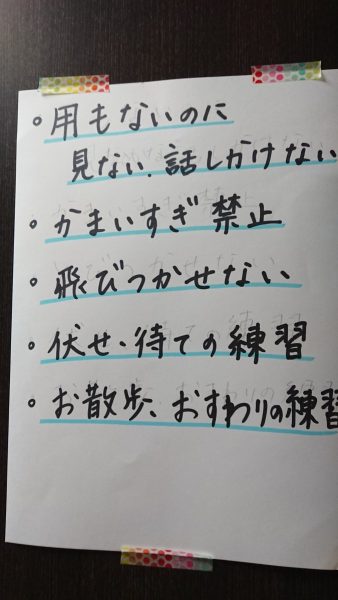 。用もないのに
見ない.話しかけない
。かまいすぎ禁止
。飛びつかせない
。伏せ・待ての練習
。お散歩、おすわりの練習